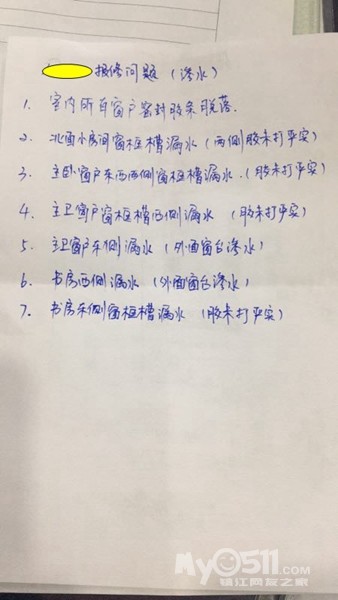 报修问题（渗水）
1. 室内所有窗户密封胶条脱落.
2. 北面小房间窗框槽漏水（两侧胶未打平实）
3. 主卧窗户东西两侧窗框槽漏水.（胶未打平实）
4. 主卫窗户窗框槽西侧漏水（胶未打平实）
5. 主卫窗户东侧漏水（外面窗台渗水）
6. 书房西侧漏水（外面窗台渗水）
7. 书房东侧窗框槽漏水（胶未打平实）
MyO511.com
镇江网友之家